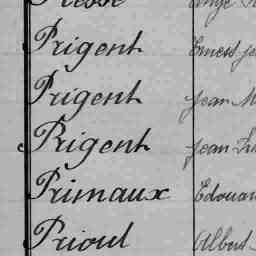 Prigent Ernest
Prigent Jean M
Prigent Jean
Primaux Edouar
Prioul Albert